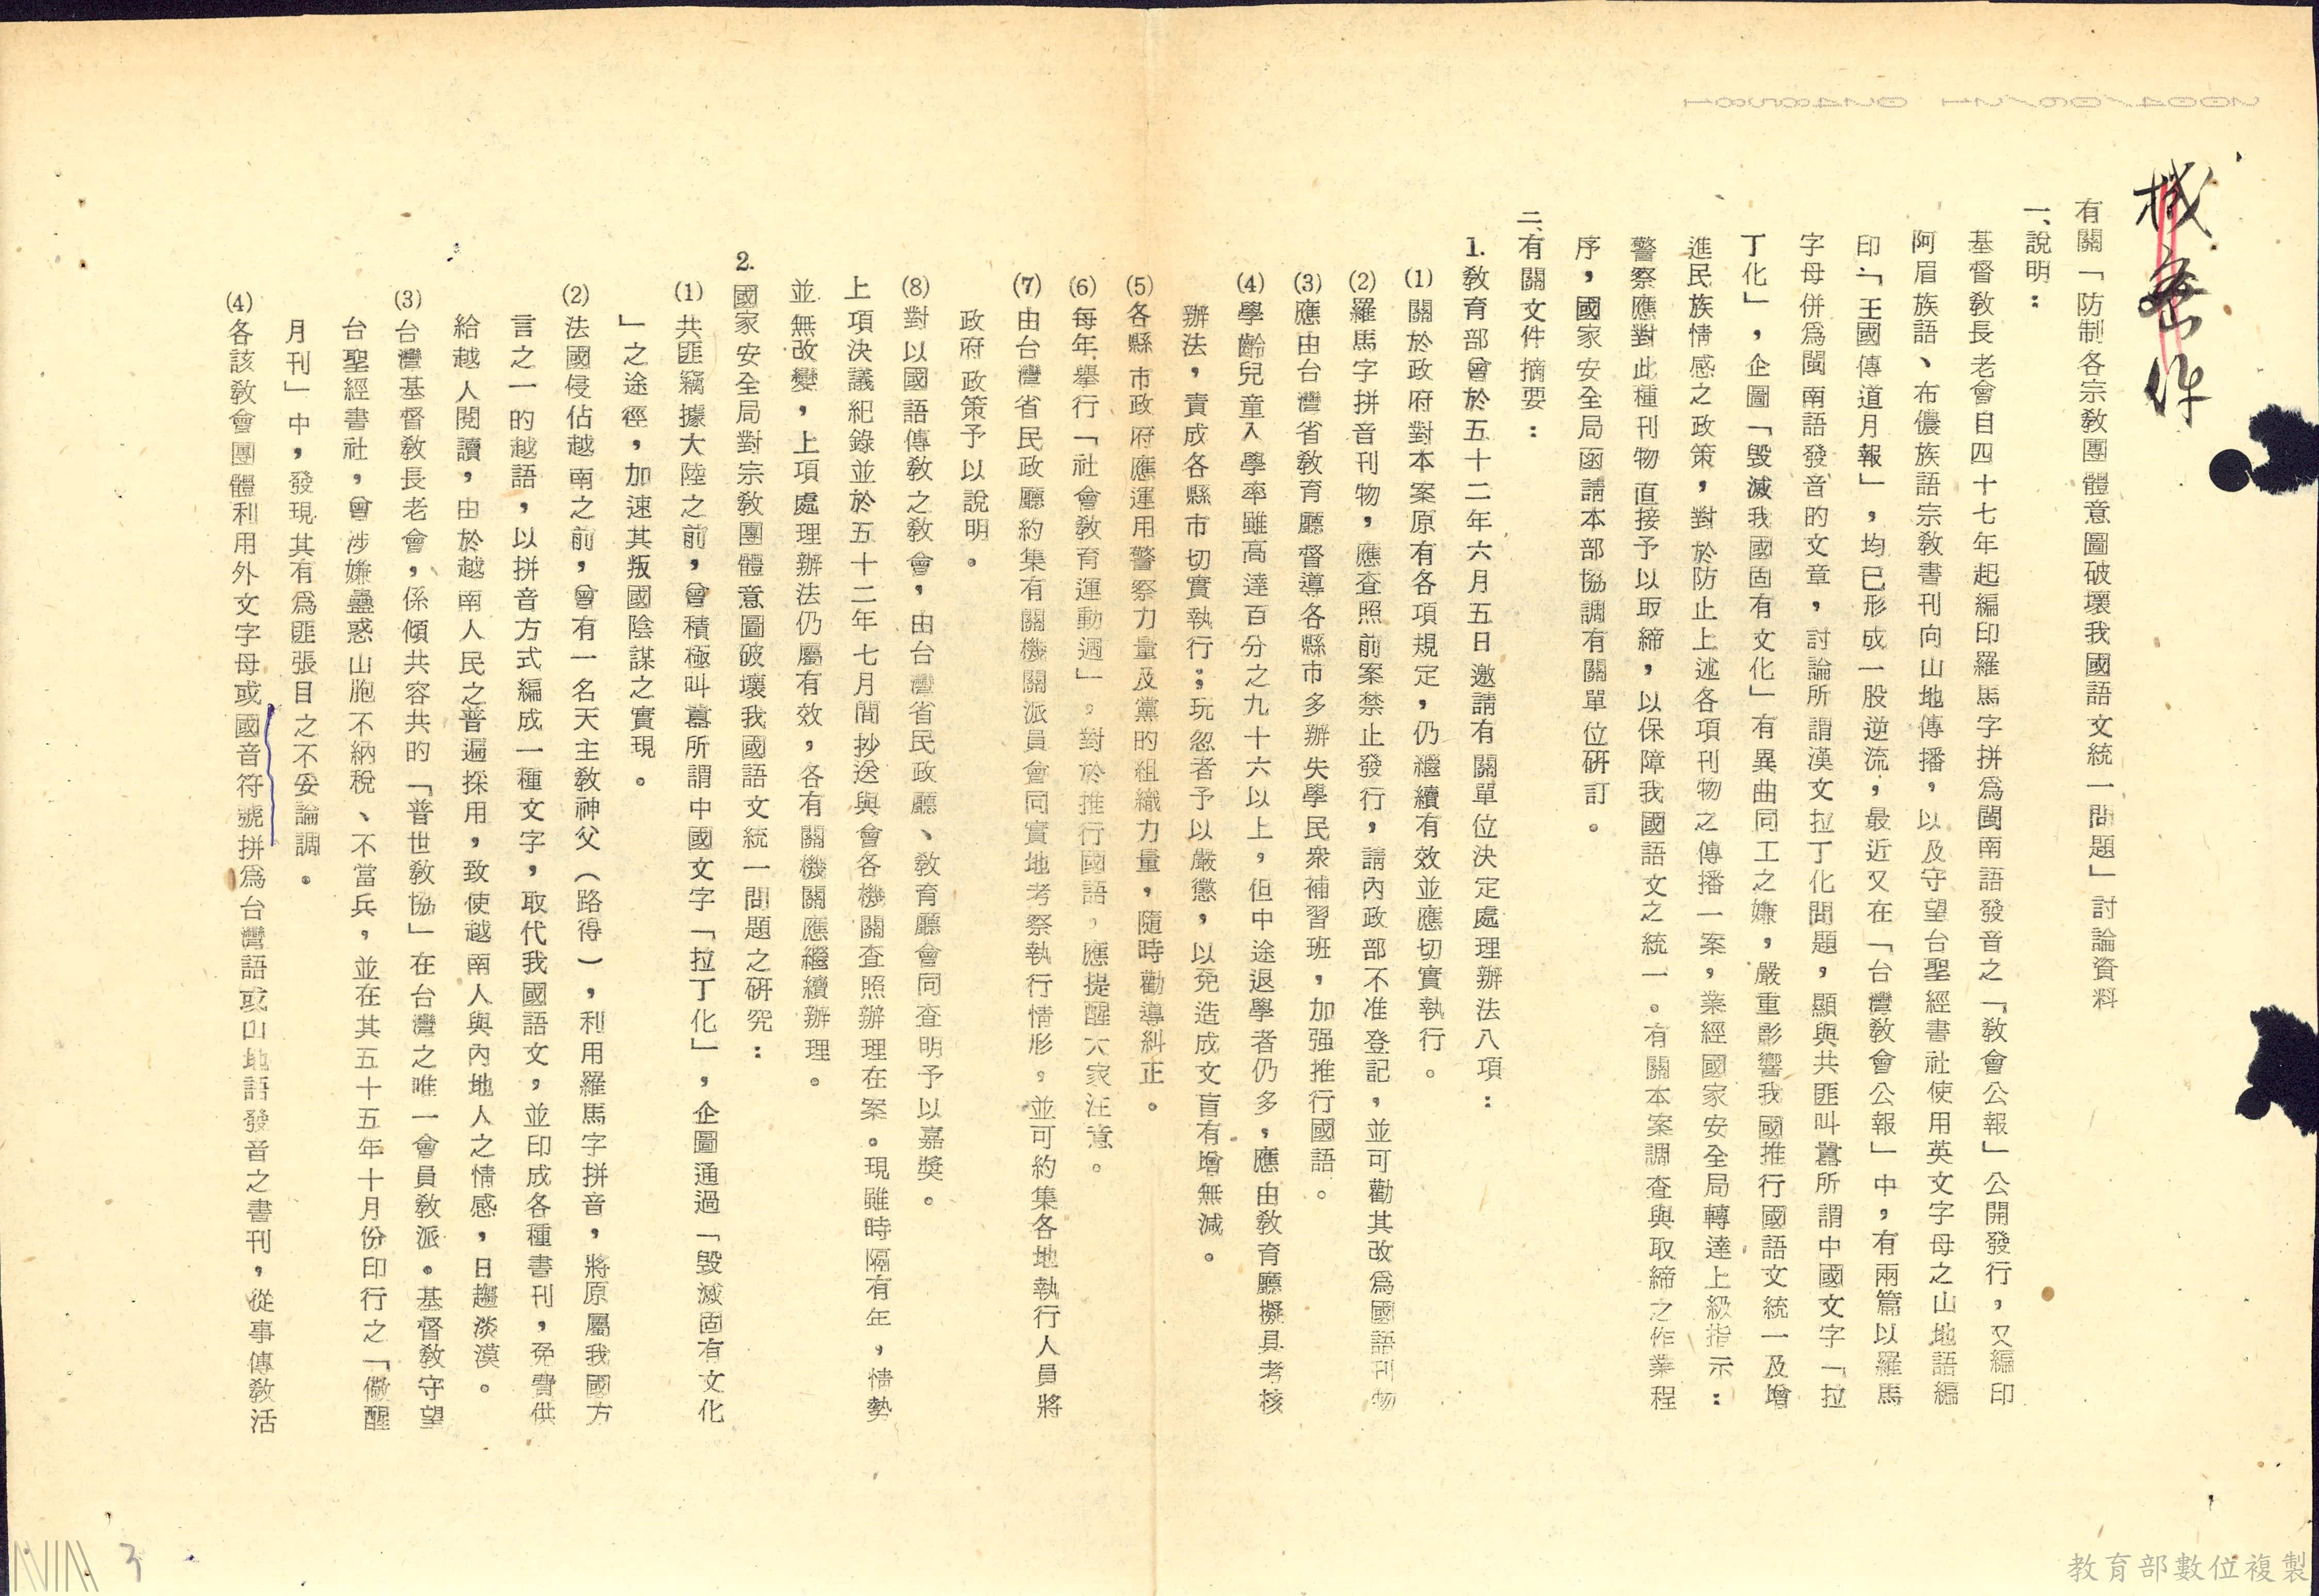 機密件
有關「防制各宗教團體意圖破壞我國語文統一問題」討論資料
一、說明：
基督教長老會自四十七年起編印羅馬字拼爲閩南語發音之「教會公報」公開發行，又編印
阿眉族語、布儂族語宗教書刊向山地傳播，以及守望台聖經書社使用英文字母之山地語編
印「王國傳道月報」，均已形成一股逆流；最近又在「台灣教會公報」中，有兩篇以羅馬
字母併爲閩南語發音的文章，討論所謂漢文拉丁化問題，顯與共匪叫囂所謂中國文字「拉
丁化」，企圖「毀滅我國固有文化」有異曲同工之嫌，嚴重影響我國推行國語文統一及增
進民族情感之政策，對於防止上述各項刊物之傳播一案，業經國家安全局轉達上級指示：
警察應對此種刊物直接予以取締，以保障我國語文之統一。有關本案調查與取締之作業程
序，國家安全局函請本部協調有關單位研訂。
二、有關文件摘要：
1.教育部曾於五十二年六月五日邀請有關單位決定處理辦法八項：
(1)關於政府對本案原有各項規定，仍繼續有效並應切實執行。
(2)羅馬字拼音刊物，應查照前案禁止發行，請內政部不准登記，並可勸其改爲國語刊物
(3)應由台灣省教育廳督導各縣市多辦失學民衆補習班，加强推行國語。
(4)學齡兒童入學率雖高達百分之九十六以上，但中途退學者仍多，應由教育廳擬具考核
辦法，責成各縣市切實執行；玩忽者予以嚴懲，以免造成文盲有增無減。
(5)各縣市政府應運用警察力量及黨的組織力量，隨時勸導糾正。
(6)每年舉行「社會教育運動週」，對於推行國語，應提醒大家注意。
(7)由台灣省民政廳約集有關機關派員會同實地考察執行情形，並可約集各地執行人員將
政府政策予以說明。
(8)對以國語傳教之教會，由台灣省民政廳、教育廳會同查明予以嘉獎。
上項決議紀錄並於五十二年七月間抄送與會各機關查照辦理在案。現雖時隔有年，情勢
並無改變，上項處理辦法仍屬有效，各有關機關應繼續辦理。
2.國家安全局對宗教團體意圖破壞我國語文統一問題之研究：
(1)共匪竊據大陸之前，曾積極叫囂所謂中國文字「拉丁化」，企圖通過「毀滅固有文化
」之途徑，加速其叛國陰謀之實現。
(2)法國侵佔越南之前，曾有一名天主教神父（路得），利用羅馬字拼音，將原屬我國方
言之一的越語，以拼音方式編成一種文字，取代我國語文，並印成各種書刊，免費供
給越人閱讀，由於越南人民之普遍採用，致使越南人與內地人之情感，日趨淡漠。
(3)台灣基督教長老會，係傾共容共的「普世教協」在台灣之唯一會員教派。基督教守望
台聖經書社，曾涉嫌蠱惑山胞不納稅、不當兵，並在其五十五年十月份印行之「儆醒
月刊」中，發現其有爲匪張目之不妥論調。
(4)各該教會團體利用外文字母或國音符號拼爲台灣語或山地語發音之書刊，從事傳教活
3
教育部數位複製